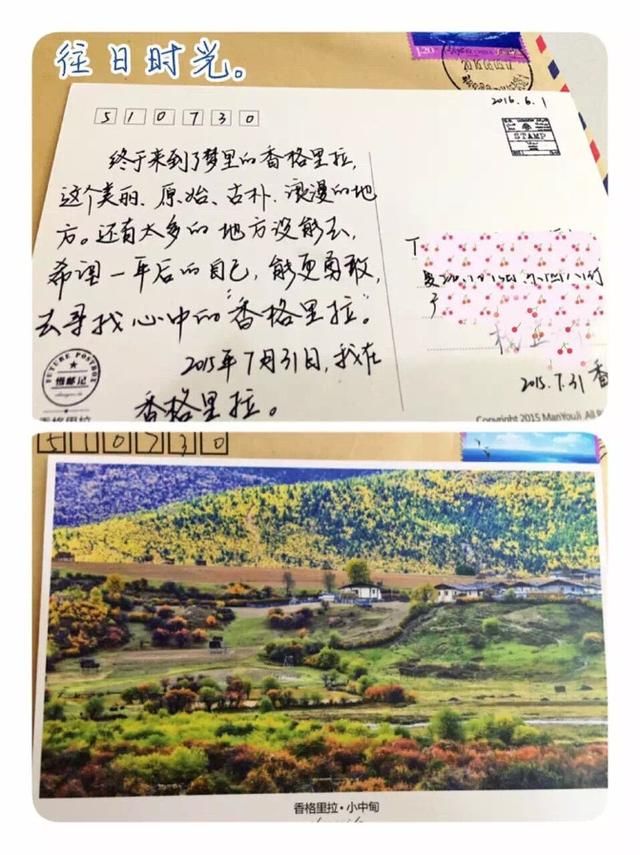 往日时光。
1.20
2016.6.1
510730
STAMP
终于来到了梦里的香格里拉,
这个美丽、原始、古朴、浪漫的地
方。还有太多的地方没能去,
希望一年后的自己,能更勇敢,
去寻找心中的“香格里拉”。
2015年7月31日,我在
香格里拉。
2015.7.31 香
FUTURE POSTBOX
慢邮记
香格里拉
Copyright 2015 ManYouJi All Ri
510730
香格里拉·小中甸